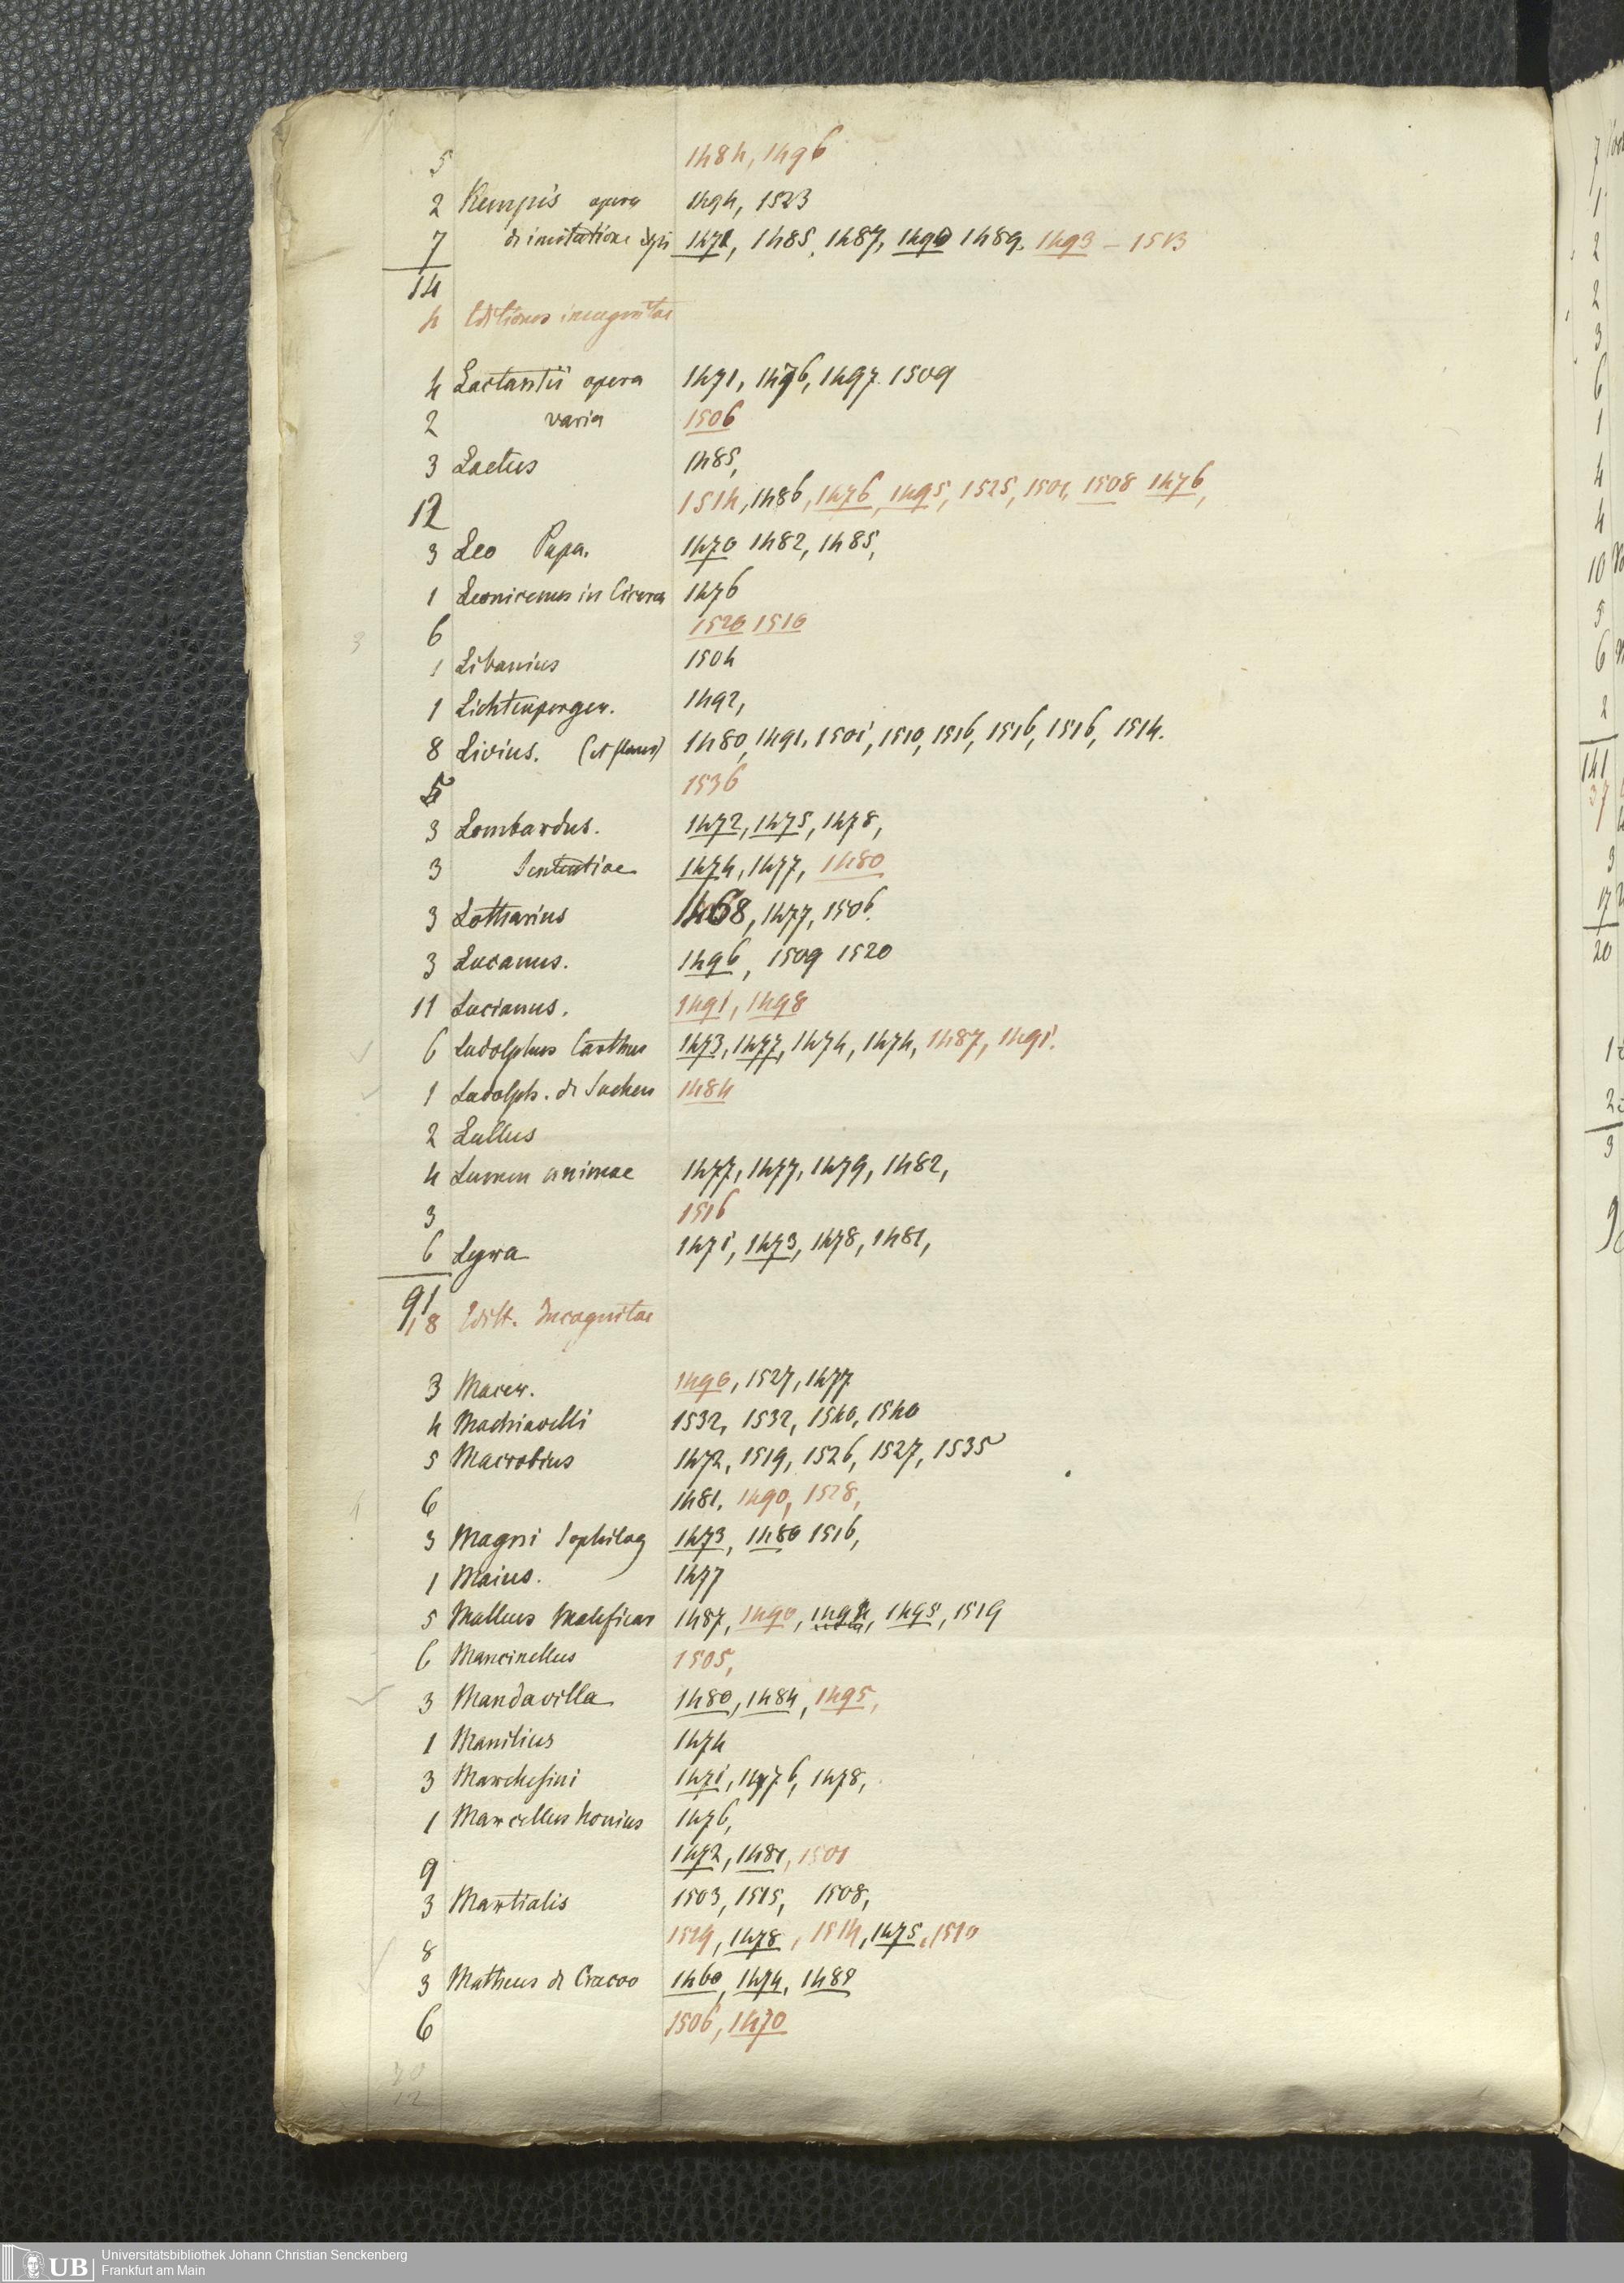 5 1484, 1496
2 Kempis opera 1494, 1523
7 de imitatione 1471, 1485, 1487, 1490 1489. 1493 – 1513
14
4 Editiones incognitae
4 Lactantii opera 1471, 1476, 1497. 1509
2 varia 1506
3 Laetus 1485,
12 1514, 1486, 1476, 1495, 1525, 1501, 1508 1476,
3 Leo Papa. 1470 1482, 1485,
1 Leonicenus in Cicero 1476
6 1520 1510
1 Libanius 1504
1 Lichtenperger. 1492,
8 Livius. 1480, 1491, 1501, 1510, 1516, 1516, 1516, 1514.
5 1536
3 Lombardus. 1472, 1475, 1478,
3 Sententiae 1474, 1477, 1480
3 Lotharius 1468, 1477, 1506.
3 Lucanus. 1496, 1509 1520
11 Lucianus. 1491, 1498
6 Ludolphus Carthus 1473, 1477, 1474, 1474, 1487, 1491.
1 Ludolph. de Suchen 1484
2 Lullus
4 Lumen animae 1477, 1477, 1479, 1482,
3 1516
6 Lyra 1471, 1473, 1478, 1481,
91
18 Edit. Incognitae
3 Macer. 1490, 1527, 1477
4 Machiavelli 1532, 1532, 1540, 1540
5 Macrobius 1472, 1519, 1526, 1527, 1535
6 1481. 1490, 1528,
3 Magni Sophilog 1473, 1480 1516,
1 Maius. 1477
5 Malleus Maleficar 1487, 1490, 1494, 1495, 1519
6 Mancinellus 1505,
3 Mandavilla 1480, 1484, 1495,
1 Manilius 1474
3 Marchesini 1471, 1476, 1478,
1 Marcellus Nonius 1476,
9 1472, 1481, 1501
3 Martialis 1503, 1515, 1508,
8 1514, 1478, 1514, 1475, 1510
3 Matheus de Cracoo 1460, 1474, 1488
6 1506, 1470
30
12
UB Universitätsbibliothek Johann Christian Senckenberg
Frankfurt am Main